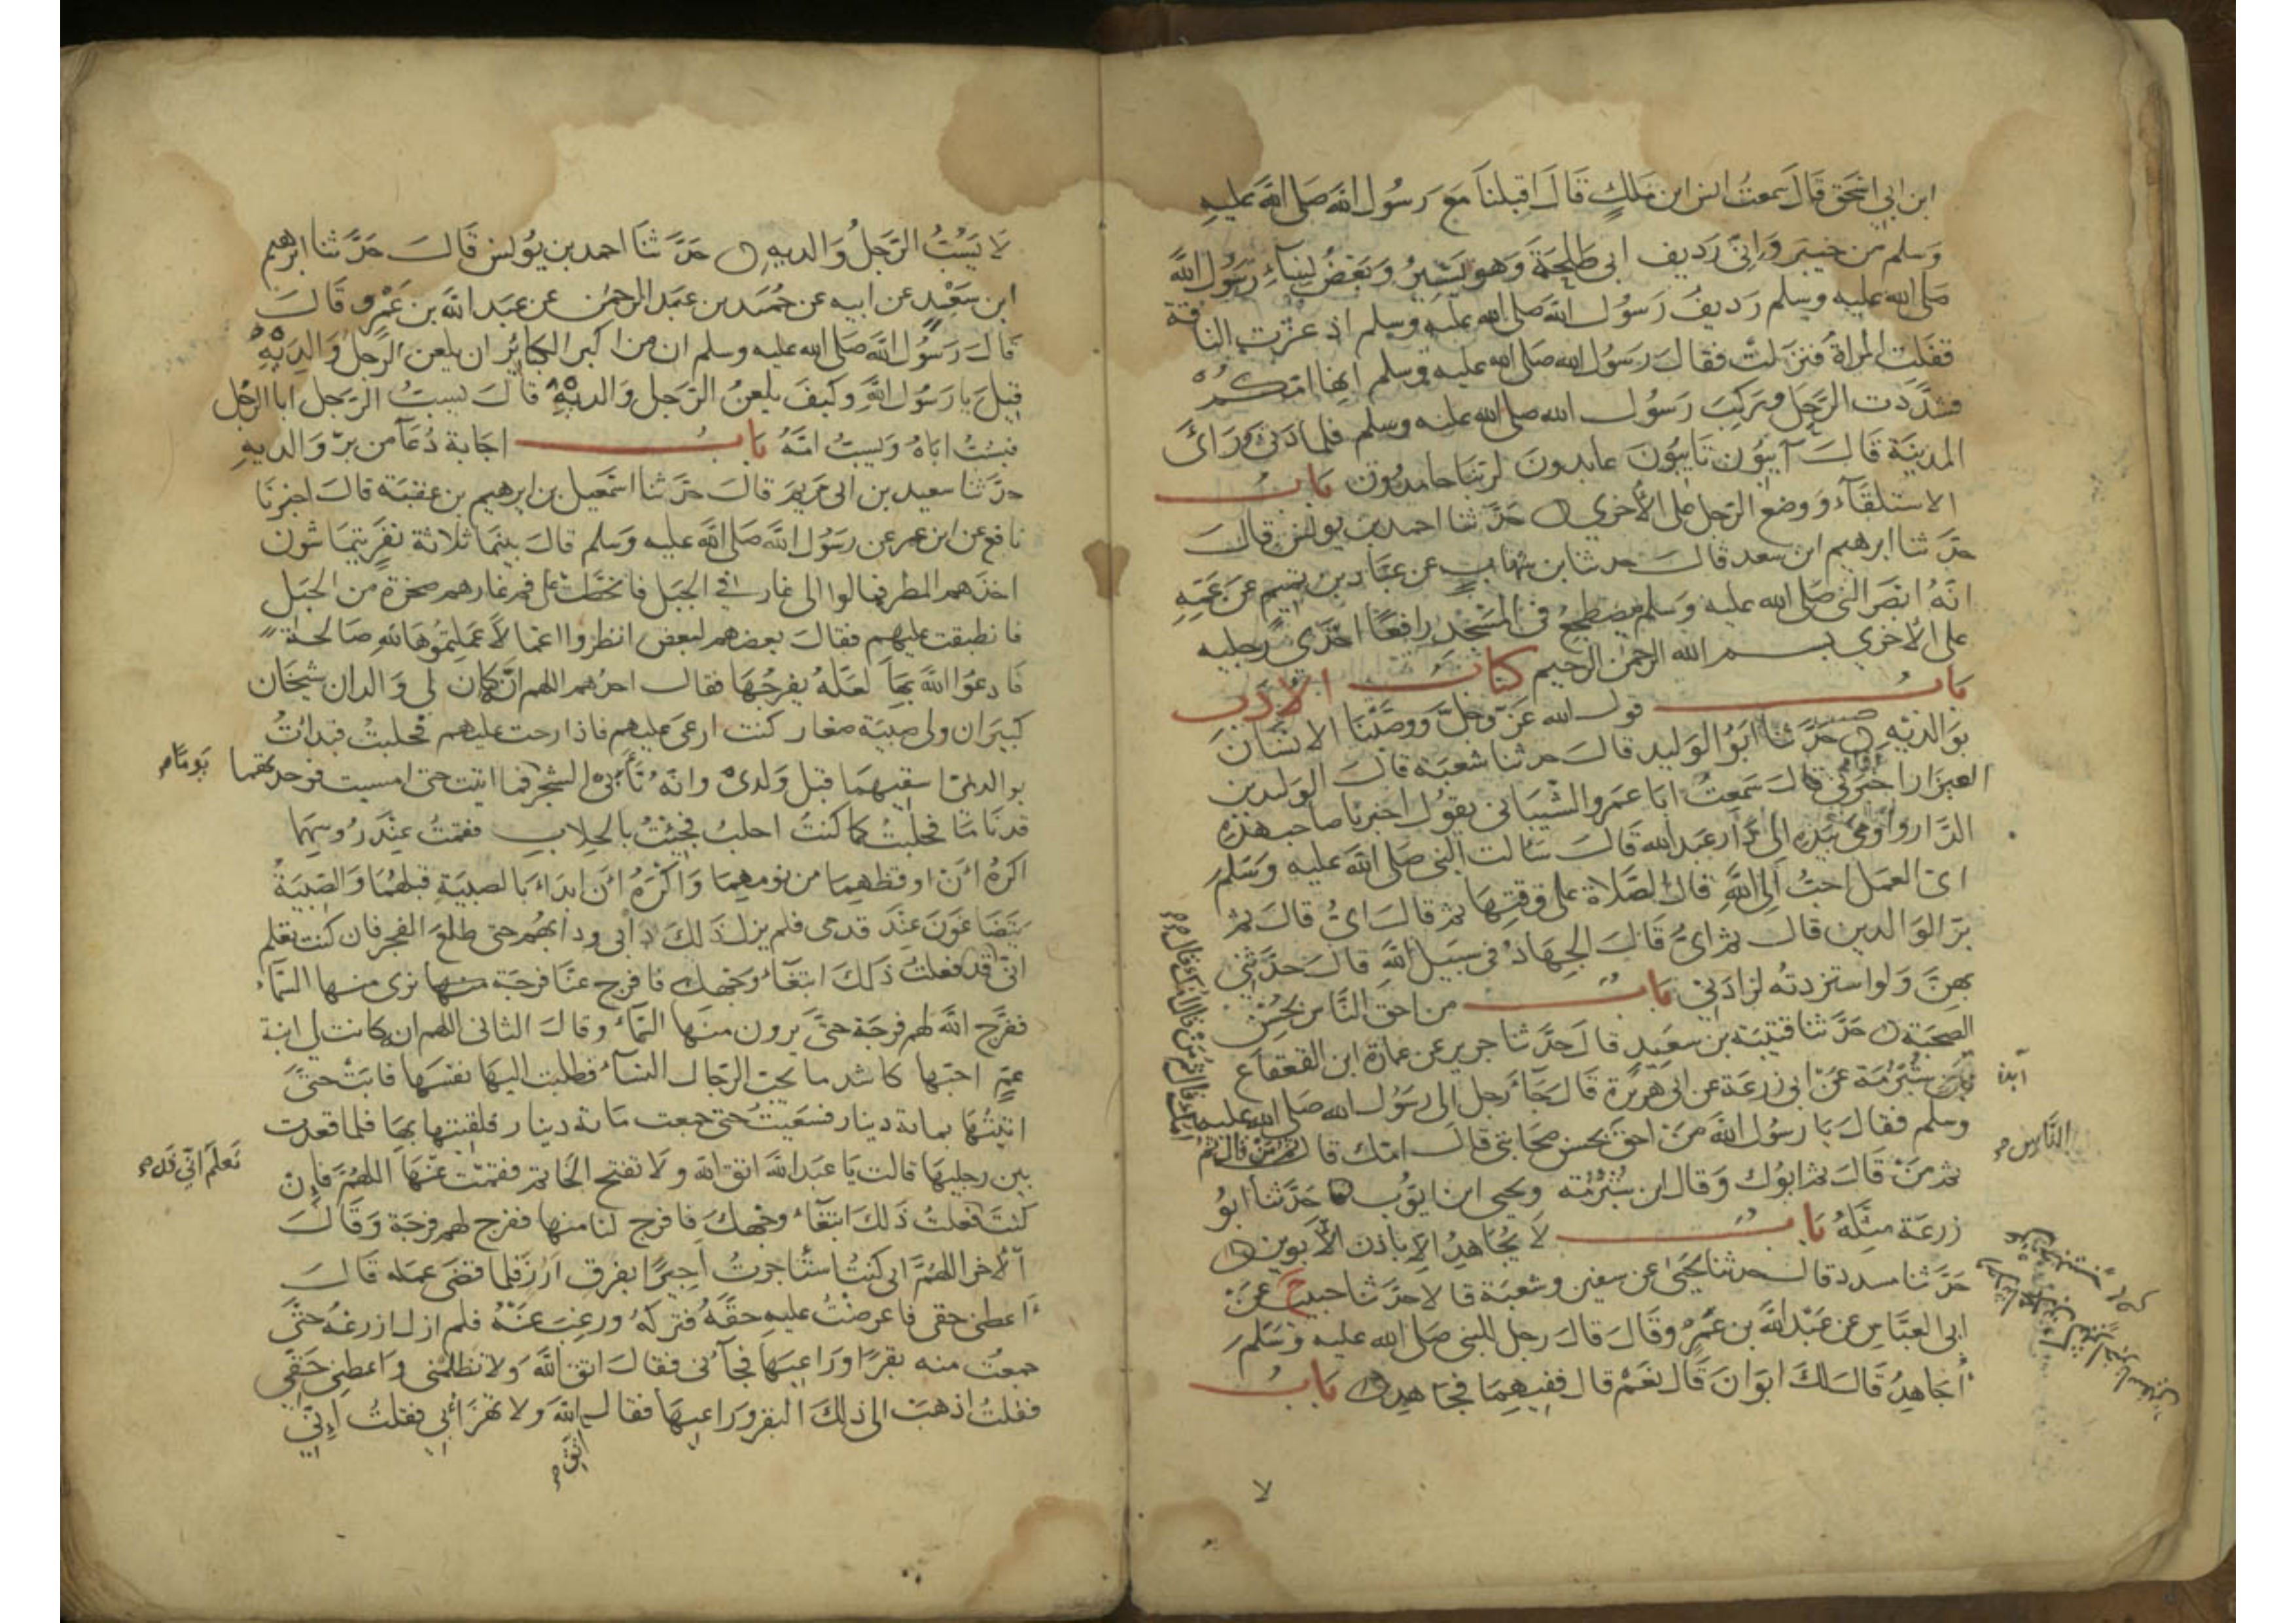 ابن ابي اسحق قال سمعت انس ابن ملك قال اقبلنا مع رسول الله صلى الله عليه
وسلم من خيبر واني رديف ابي طلحة وهو يسير وبعض نساء رسول الله
صلى الله عليه وسلم رديف رسول الله صلى الله عليه وسلم اذ عثرت الناقة
فقلت المراة فنزلت فقال رسول الله صلى الله عليه وسلم انها امكم
فشددت الرحل وركب رسول الله صلى الله عليه وسلم فلما دنى وراى
المدينة قال آيبون تايبون عابدون لربنا حامدون باب
الاستلقآء ووضع الرجل على الأخرى حدثنا احمد بن يونس قال
حدثنا ابرهيم ابن سعد قال حدثنا بن شهاب عن عباد بن تميم عن عمه
انه ابصر النبي صلى الله عليه وسلم مضطجع في المسجد رافعا احدى رجليه
على الأخرى بسم الله الرحمن الرحيم كتاب الادب
باب قول الله عز وجل ووصينا الانسان
بوالديه حدثنا ابو الوليد قال حدثنا شعبة قال الوليد بن
العيزار اخبرني قال سمعت ابا عمرو الشيباني يقول اخبرنا صاحب هذه
الدار واومى بيده الى دار عبد الله قال سالت النبي صلى الله عليه وسلم
اي العمل احب الى الله قال الصلاة على وقتها ثم قال اي قال ثم
بر الوالدين قال ثم اي قال الجهاد في سبيل الله قال حدثني
بهن ولو استزدته لزادني باب من احق الناس بحسن
الصحبة حدثنا قتيبة بن سعيد قال حدثنا جرير عن عمارة ابن القعقاع
بن شبرمة عن ابي زرعة عن ابي هريرة قال جآء رجل الى رسول الله صلى الله عليه
وسلم فقال يا رسول الله من احق بحسن صحابتي قال امك قال ثم من قال ثم
ثم من قال ثم ابوك وقال ابن شبرمة ويحيى ابن ايوب حدثنا ابو
زرعة مثله باب لا يجاهد الا باذن الأبوين
حدثنا مسدد قال حدثنا يحيى عن سفين وشعبة قالا حدثنا حبيب ح
ابي العباس عن عبد الله بن عمرو قال قال رجل للنبي صلى الله عليه وسلم
أجاهد قال لك ابوان قال نعم قال ففيهما فجاهد باب
الناس
لا
لا يسب الرجل والديه حدثنا احمد بن يونس قال حدثنا ابرهيم
ابن سعد عن ابيه عن حميد بن عبد الرحمن عن عبد الله بن عمرو قال
قال رسول الله صلى الله عليه وسلم ان من اكبر الكبائر ان يلعن الرجل والديه
قيل يا رسول الله وكيف يلعن الرجل والديه قال يسب الرجل ابا الرجل
فيسب اباه ويسب امه باب اجابة دعآ من بر والديه
حدثنا سعيد بن ابي مريم قال حدثنا اسمعيل بن ابرهيم بن عقبة قال اخبرنا
نافع عن ابن عمر عن رسول الله صلى الله عليه وسلم قال بينما ثلاثة نفر يتماشون
اخذهم المطر فمالوا الى غار في الجبل فانحطت على فم غارهم صخرة من الجبل
فانطبقت عليهم فقال بعضهم لبعض انظروا اعمالا عملتموها لله صالحة
فادعوا الله بها لعله يفرجها فقال احدهم اللهم انه كان لي والدان شيخان
كبيران ولي صبية صغار كنت ارعى عليهم فاذا رحت عليهم فحلبت فبدات
بوالدي اسقيهما قبل ولدي وانه نأى بي الشجر فما اتيت حتى امسيت فوجدتهما
قد ناما فحلبت كما كنت احلب فجئت بالحلاب فقمت عند روسهما
اكره أن اوقظهما من نومهما واكره أن ابداء بالصبية قبلهما والصبية
يتضاغون عند قدمي فلم يزل ذلك دأبي ودأبهم حتى طلع الفجر فان كنت تعلم
اني قد فعلت ذلك ابتغاء وجهك فافرج عنا فرجة منها نرى منها السمآء
ففرج الله لهم فرجة حتى يرون منها السماء وقال الثاني اللهم انه كانت لي ابنة
عم احبها كاشد ما يحب الرجال النسآء فطلبت اليها نفسها فابت حتى
اتيتها بماية دينار فسعيت حتى جمعت ماية دينار فلقيتها بها فلما قعدت
بين رجليها قالت يا عبد الله اتق الله ولا تفتح الخاتم فقمت عنها اللهم فإن
كنت فعلت ذلك ابتغاء وجهك فافرج لنا منها ففرج لهم فرجة وقال
الآخر اللهم اني كنت استأجرت أجيرا بفرق أرز فلما قضى عمله قال
أعطني حقي فاعرضت عليه حقه فتركه ورغب عنه فلم ازل ازرعه حتى
جمعت منه بقرا وراعيها فجآئني فقال اتق الله ولا تظلمني واعطني حقي
فقلت اذهب الى ذلك البقر وراعيها فقال الله ولا تهزأ بي فقلت إني
يوما
تعلم اني قد
اتق